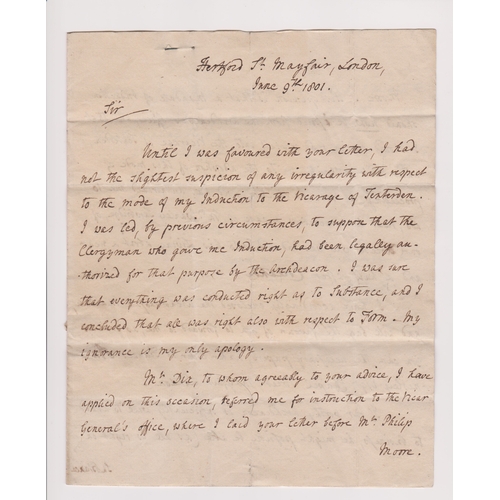 Hertford St. Mayfair, London,
June 9th. 1801.
Sir
Until I was favoured with your letter, I had
not the slightest suspicion of any irregularity with respect
to the mode of my Induction to the Vicarage of Tenterden.
I was led, by previous circumstances, to suppose that the
Clergyman who gave me Induction, had been legally au-
thorized for that purpose by the Archdeacon. I was sure
that everything was conducted right as to Substance, and I
concluded that all was right also with respect to Form. My
ignorance is my only apology.
Mr. Dix, to whom agreeably to your advice, I have
applied on this occasion, referred me for instruction to the Vicar
General's office, where I laid your letter before Mr. Philip
Moore.